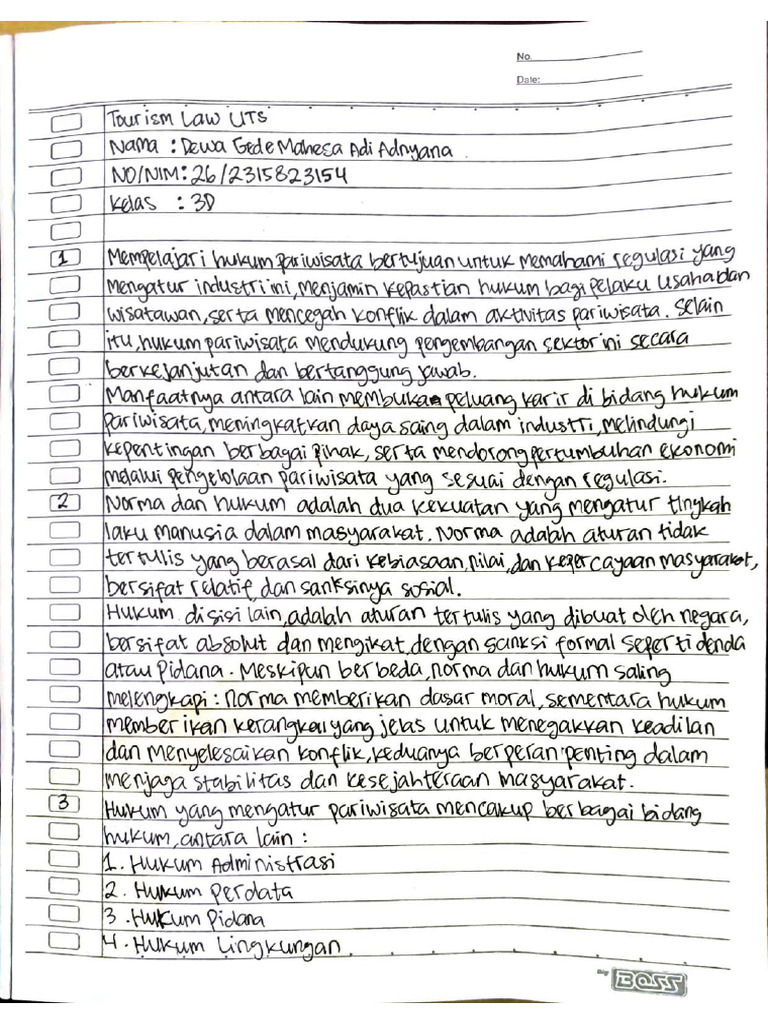 No.
Date:
Tourism Law UTS
Nama : Dewa Gede Mahesa Adi Adnyana
NO/NIM: 26/2315823154
Kelas : 3D
1 Mempelajari hukum pariwisata bertujuan untuk memahami regulasi yang
Mengatur industri ini, menjamin kepastian hukum bagi pelaku usaha dan
wisatawan, serta mencegah konflik dalam aktivitas pariwisata. Selain
itu, hukum pariwisata mendukung pengembangan sektor ini secara
berkelanjutan dan bertanggung jawab.
Manfaatnya antara lain membuka peluang karir di bidang hukum
pariwisata, meningkatkan daya saing dalam industri, melindungi
kepentingan berbagai pihak, serta mendorong pertumbuhan ekonomi
melalui pengelolaan pariwisata yang sesuai dengan regulasi.
2 Norma dan hukum adalah dua kekuatan yang mengatur tingkah
laku manusia dalam masyarakat. Norma adalah aturan tidak
tertulis yang berasal dari kebiasaan, nilai, dan kepercayaan masyarakat,
bersifat relatif, dan sanksinya sosial.
Hukum disisi lain, adalah aturan tertulis yang dibuat oleh negara,
bersifat absolut dan mengikat, dengan sanksi formal seperti denda
atau Pidana. Meskipun berbeda, norma dan hukum saling
melengkapi: norma memberikan dasar moral, sementara hukum
memberikan kerangka yang jelas untuk menegakkan keadilan
dan menyelesaikan konflik, keduanya berperan penting dalam
menjaga stabilitas dan kesejahteraan masyarakat.
3 Hukum yang mengatur pariwisata mencakup berbagai bidang
hukum, antara lain :
1. Hukum Administrasi
2. Hukum Perdata
3. Hukum Pidana
4. Hukum Lingkungan
by BOSS